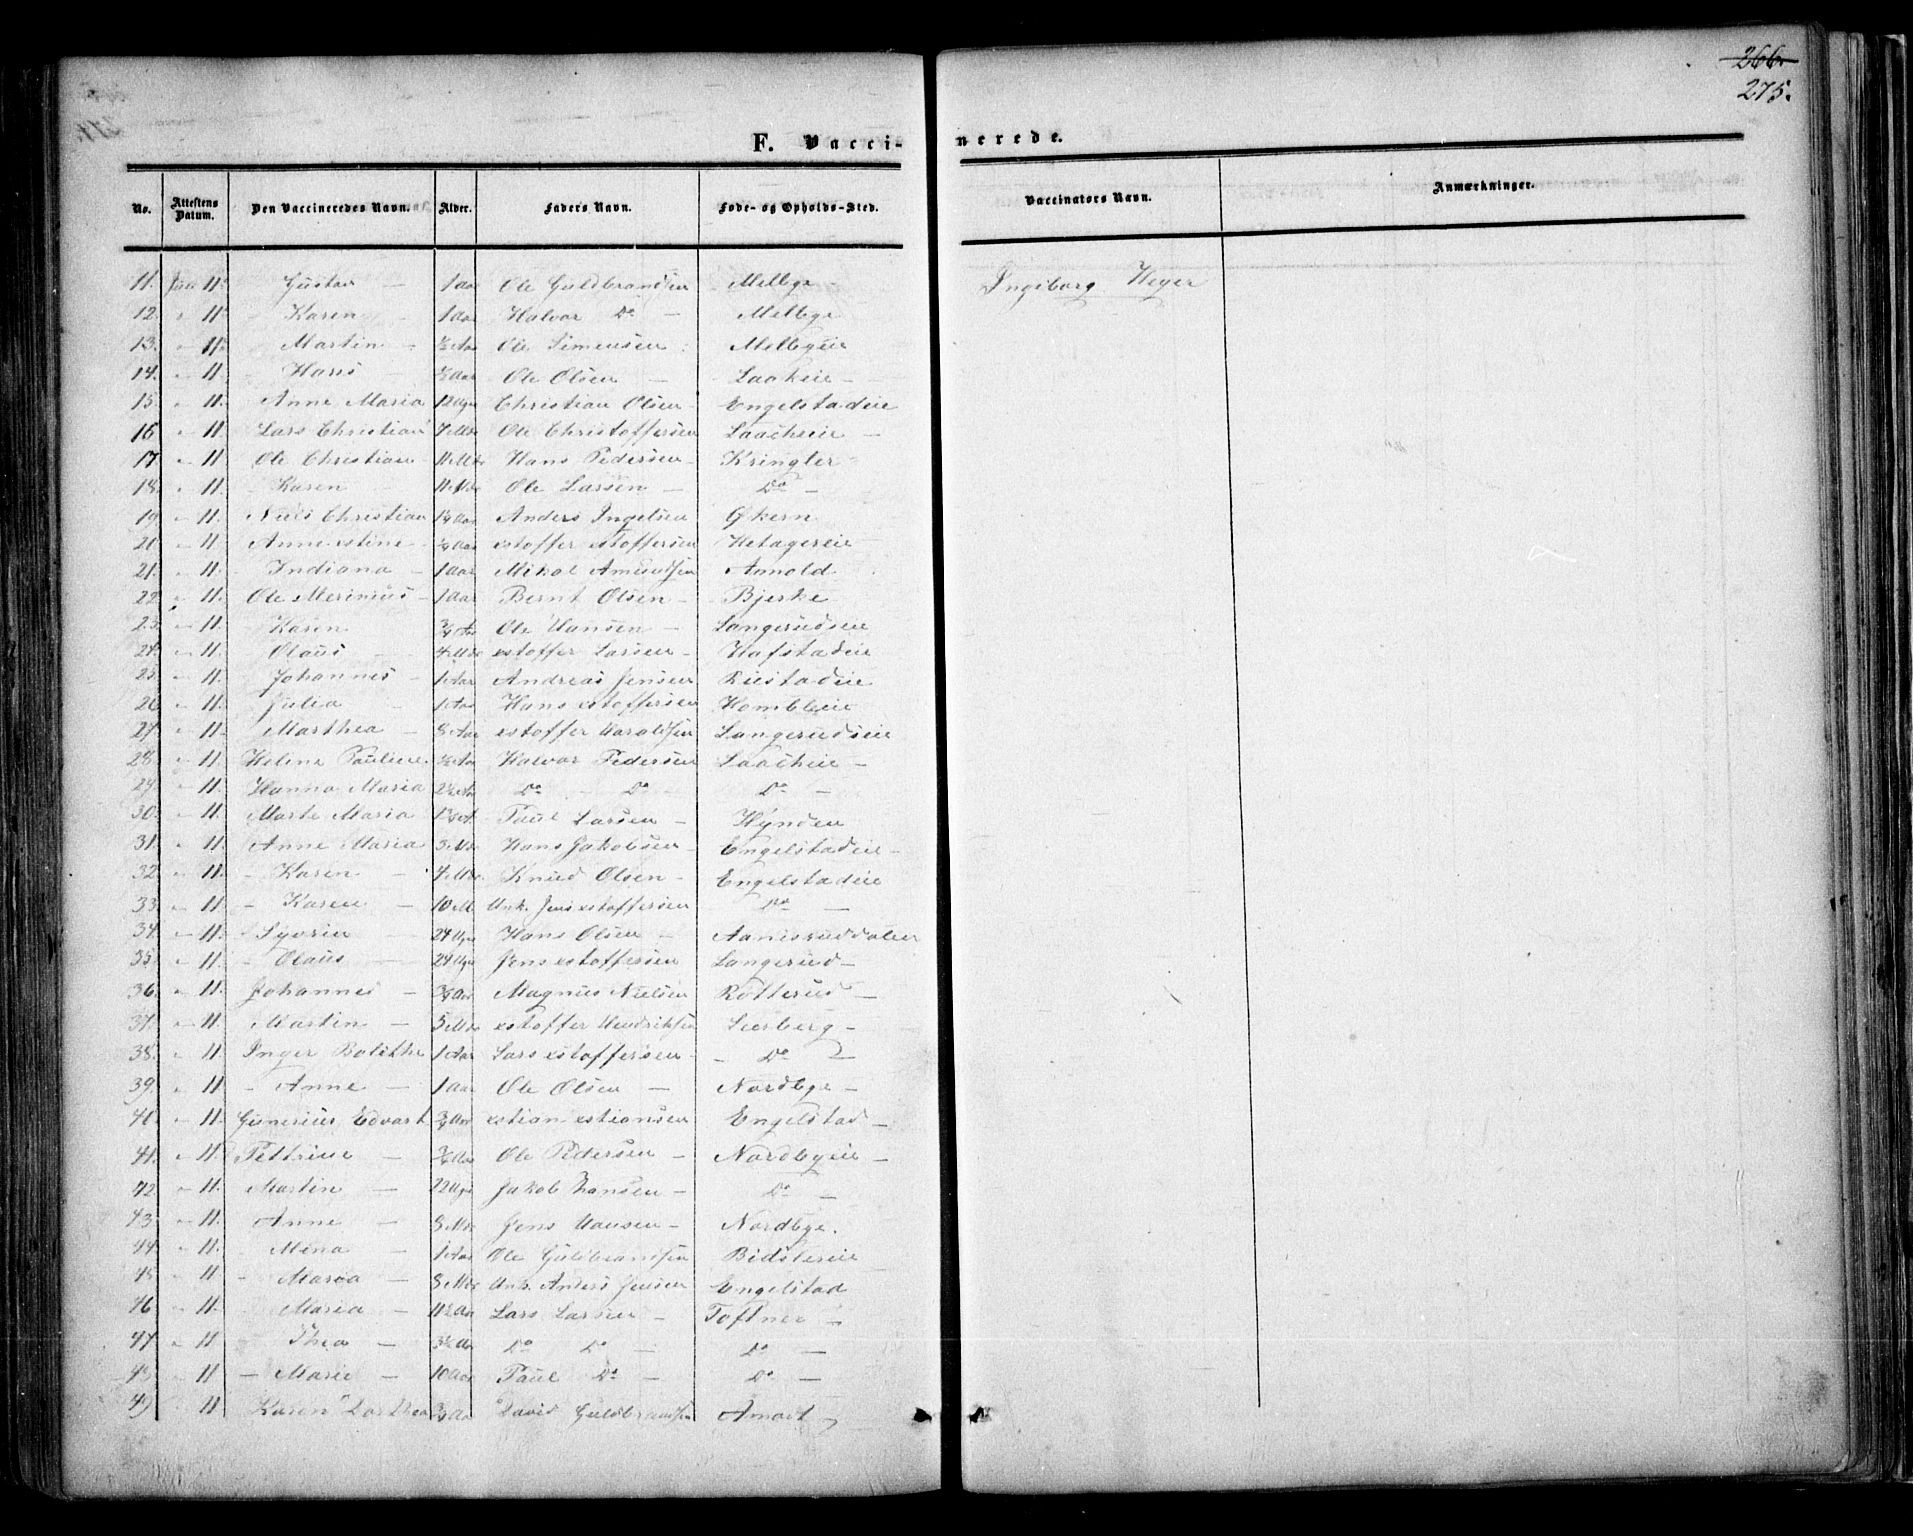 266.
275.
F. Vacci-nerede.
No. Attestens Datum. Den Vaccineredes Navn. Alder. Faders Navn. Føde- og Opholds-Sted. Vaccinators Navn. Anmærkninger.
11. 11 Gustav — 1 Aar Ole Guldbrandsen Melbye - Ingeborg Heyer
12. " 11 Karen 1 Aar Halvor Do — Melbye
13. " 11 Martin - Aar Ole Simensen Melbyeie
14. " 11 - Hans - Aar Ole Olsen — Laakeie -
15. " 11. Anne Maria 12 Uger Christian Olsen - Engelstadeie
16 " 11 Lars Christian Mdr Ole Christoffersen Laacheie —
17. " 11 Ole Christian 11 Mdr Hans Pedersen - Kringler
18. " 11. - Karen 11 Mdr Ole Larsen — Do —
19. " 11. Niels Christian Aar Anders Ingelsen Økern
20. " 11 Anne xstine - Aar xstoffer xstoffersen Hetagereie
21. " 11. Indiana - 1 Aar Mikal Amundsen Arnold
22. " 11. Ole Merinius - 1 Aar Bernt Olsen - Bjerke
23. " 11. Karen Ole Hansen — Langerudseie
24. " 11. Olaus - 4 Mdr xstoffer Larsen - Hofstadeie
25. " 11. Johannes - 1 Aar Andreas Jensen Riistadeie
26 " 11. Julia - 1 Aar Hans xstoffersen Hombleie
27. " 11. Marthea — 8 Aar xstoffer Haraldsen Langerudseie
28. " 11. Helene Pauline Aar Halvor Pedersen Laacheie —
29. " 11 Hanna Maria 2½ Aar Do - Do - Do —
30. " 11 Marte Maria Paul Larsen — Hynden
31. " 11. Anne Maria 3 Mdr Hans Jakobsen - Engelstadeie -
32. " 11. - Karen - 4 Mdr Knud Olsen - Engelstadeie
33. " 11 - Karen — 10 M Unk. Jens xstoffersen Do —
34. " 11. 24 Uger Hans Olsen -
35. " 11. - Olaus - 24 Uger Jens xstoffersen Langerud -
36. " 11. Johannes - Aar Magnus Nielsen Rotterud —
37. " 11. Martin — 5 Mdr xstoffer Hendriksen Leerberg -
38. " 11 Inger Bolethe 1 Aar Lars xstoffersen - - Do —
39. " 11 - Anne — 1 Aar Ole Olsen — Nordbye -
40. " 11. Gunerius Edvart ¾ Aar xstian xstiansen Engelstad -
41. " 11. Pettrine — Aar Ole Pedersen — Nordbyeie -
42. " 11. Martin — 22 Uger Jakob Hansen - Do —
43 " 11. Anne — 8 Mdr Jens Hansen - Nordbye.
44. " 11. Mina — 1 Aar Ole Guldbrandsen Bidslereie
45. " 11 - Maria — 8 Mdr Unk. Anders Jensen Engelstad
46 " 11. - Maria — 11½ Aar Lars Larsen - Toftner -
47. " 11 - Thea — 3½ Aar Do Do — Do —
48 " 11 — Marie — 10 Aar Paul Do — Do —
49 11 Karen Dorthea Aar David Guldbrandsen Amodt